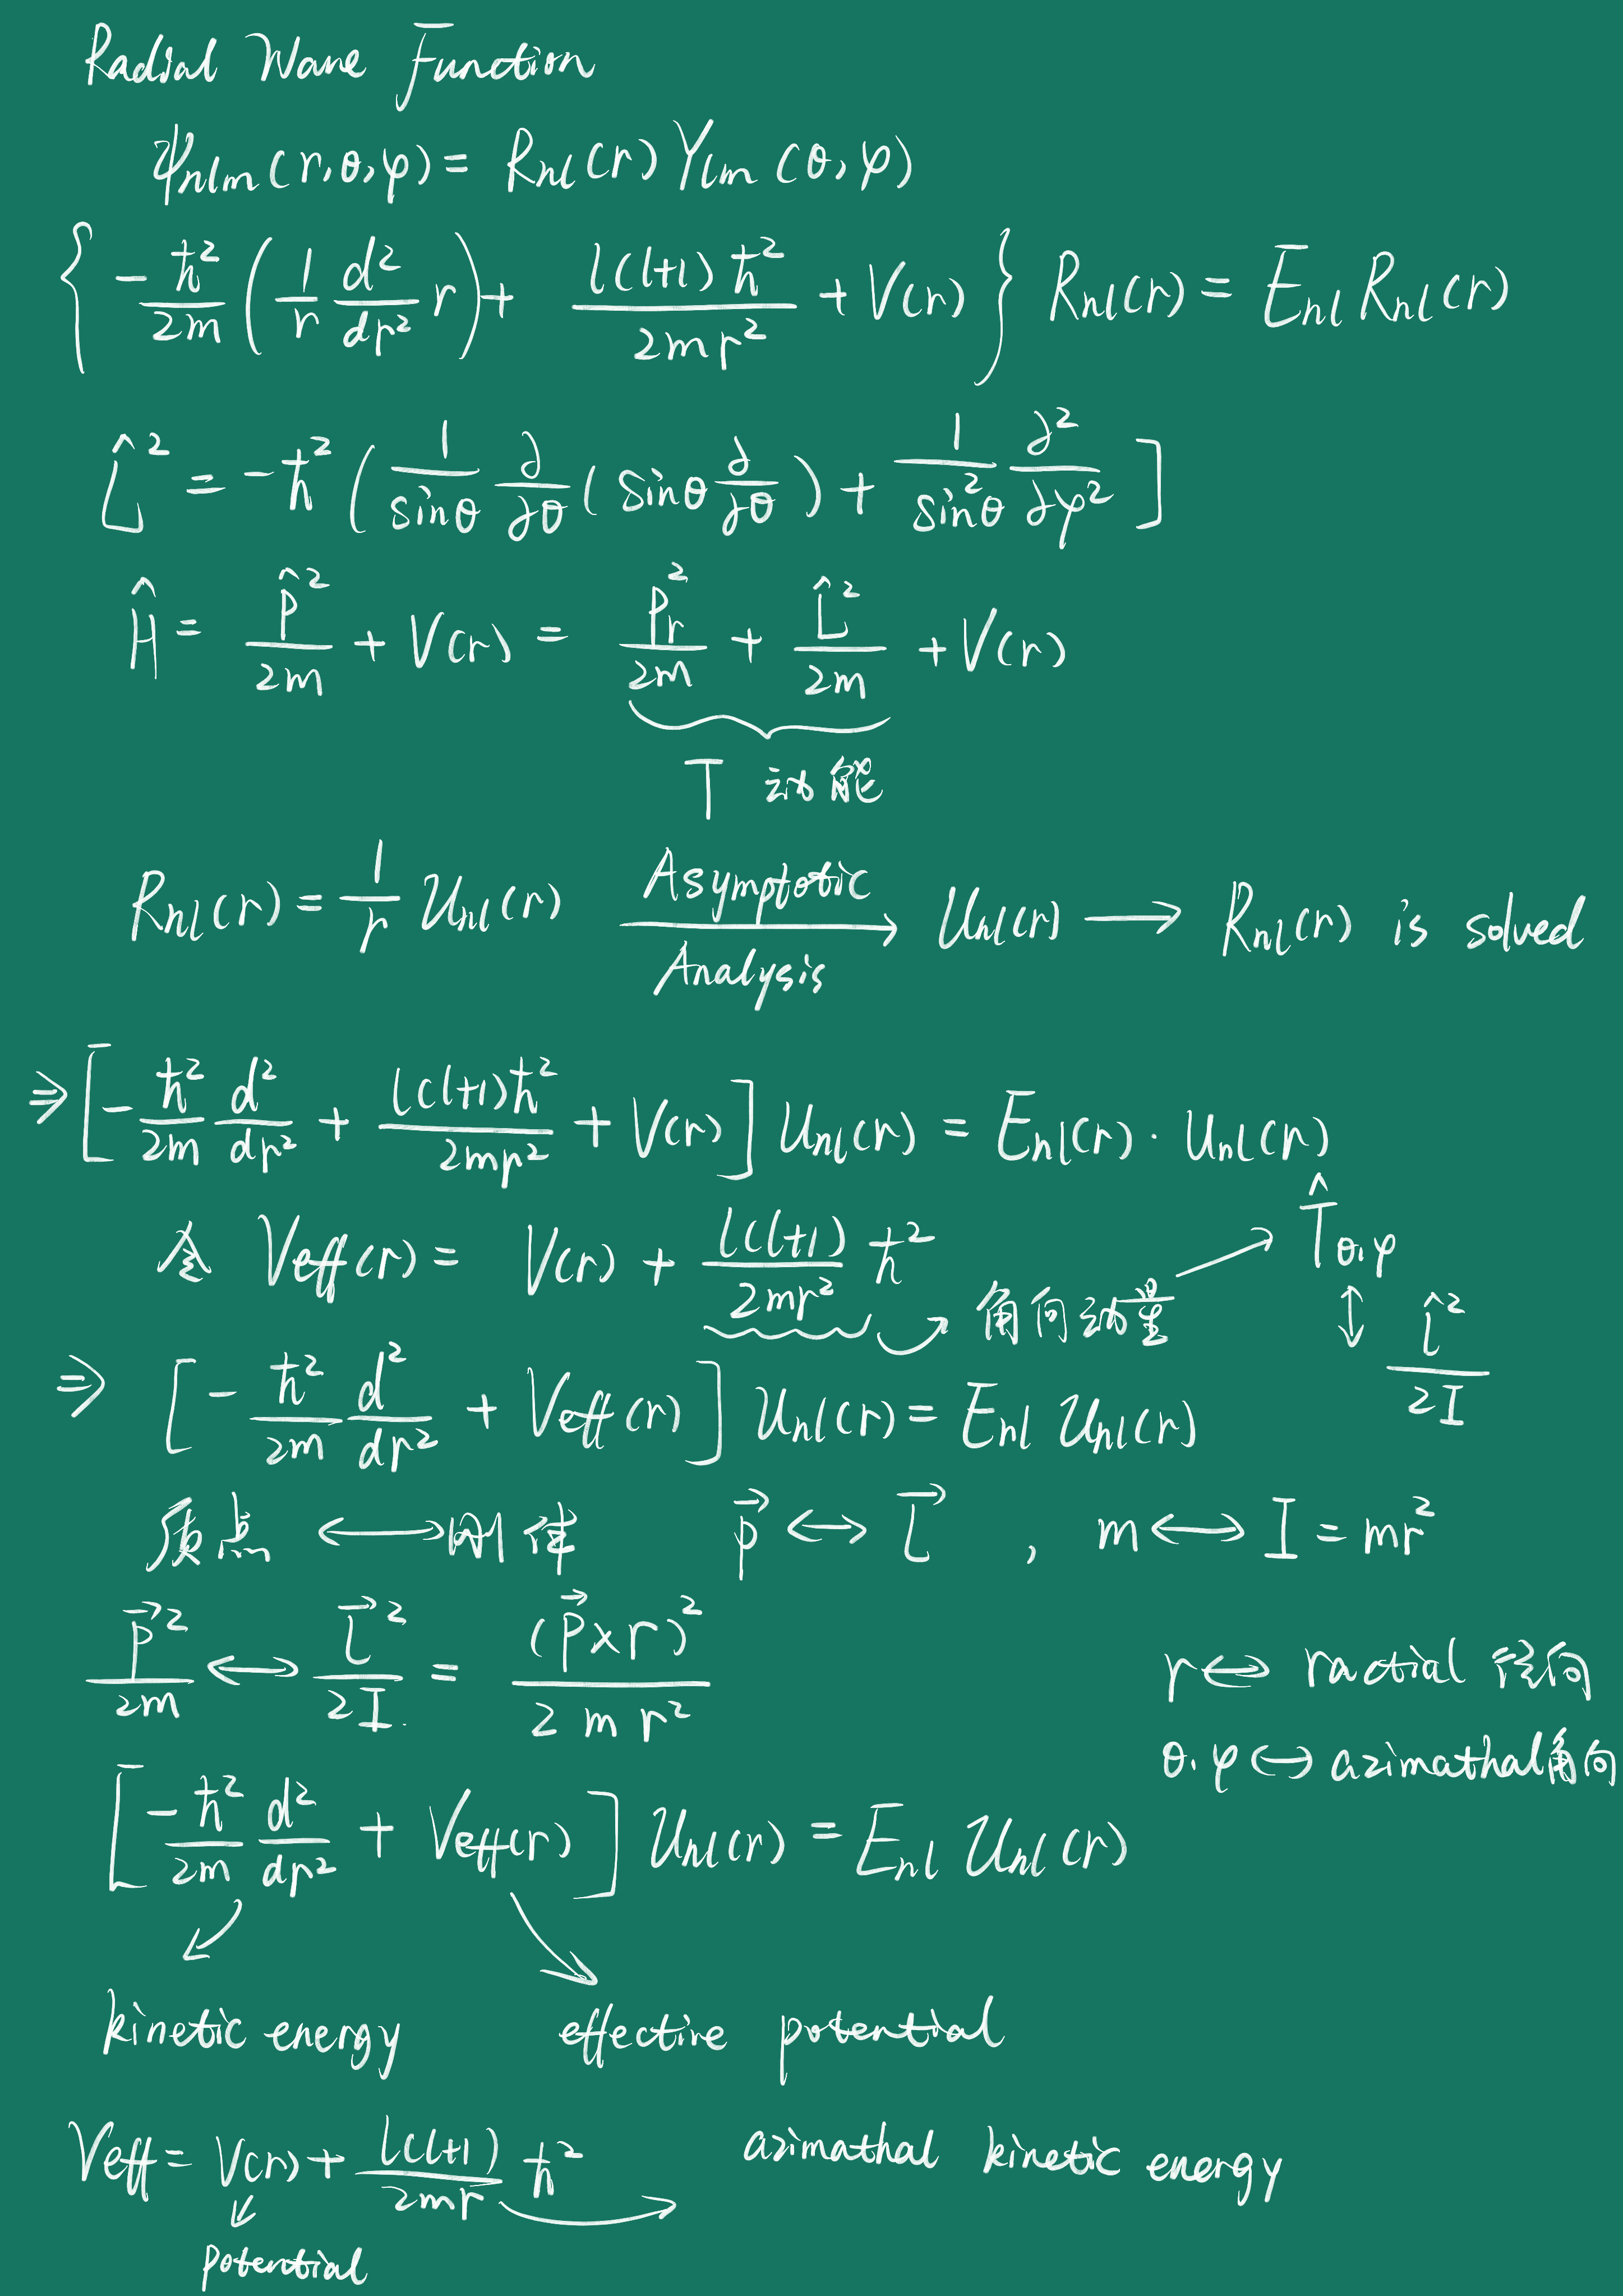 Radial Wave Function
ψnlm(r,θ,φ) = Rnl(r) Ylm(θ,φ)
{ -ħ²/2m (1/r d²/dr² r) + l(l+1)ħ²/2mr² + V(r) } Rnl(r) = Enl Rnl(r)
L̂² = -ħ² ( 1/sinθ ∂/∂θ (sinθ ∂/∂θ) + 1/sin²θ ∂²/∂φ² ]
Ĥ = p̂²/2m + V(r) = Pr²/2m + L̂²/2m + V(r)
T 动能
Rnl(r) = 1/r Unl(r) Asymptotic Analysis → Unl(r) → Rnl(r) is solved
⇒ [ -ħ²/2m d²/dr² + l(l+1)ħ²/2mr² + V(r) ] Unl(r) = Enl(r) · Unl(r)
令 Veff(r) = V(r) + l(l+1)/2mr² ħ² 角向动量 → T̂θ,φ
↕ L̂²/2I
⇒ [ -ħ²/2m d²/dr² + Veff(r) ] Unl(r) = Enl Unl(r)
质点 ↔ 刚体 p⃗ ↔ L⃗ , m ↔ I = mr²
p⃗²/2m ↔ L⃗²/2I = (p⃗×r)²/2mr²
r ↔ ractial 径向
θ,φ ↔ azimathal 角向
[ -ħ²/2m d²/dr² + Veff(r) ] Unl(r) = Enl Unl(r)
kinetic energy effective potential
Veff = V(r) + l(l+1)/2mr ħ² → azimathal kinetic energy
potential